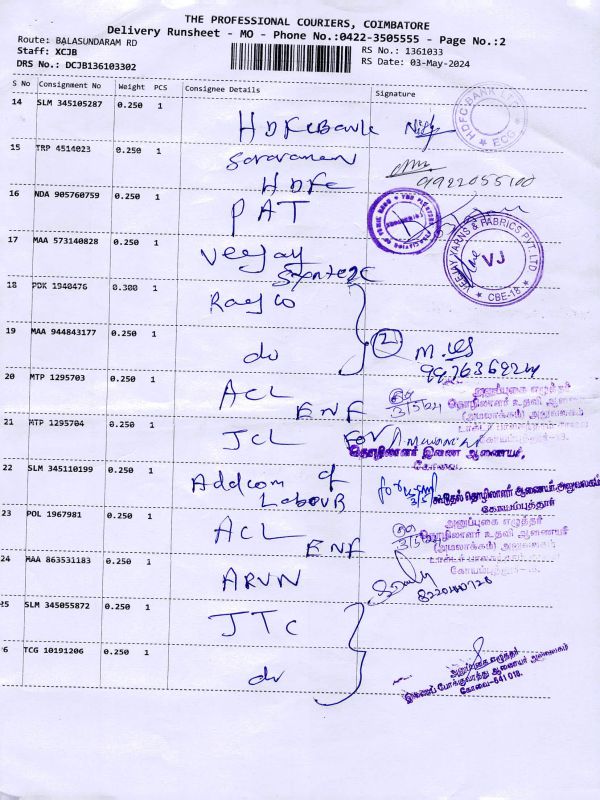 THE PROFESSIONAL COURIERS, COIMBATORE
Delivery Runsheet - MO - Phone No.:0422-3505555 - Page No.:2
Route: BALASUNDARAM RD
Staff: XCJB
RS No.: 1361033
DRS No.: DCJB136103302
RS Date: 03-May-2024
S No Consignment No Weight PCS Consignee Details Signature
14 SLM 345105287 0.250 1
HDFC Bank
HDFC BANK
ECG
15 TRP 4514023 0.250 1
Saravanan
HDFC
16 NDA 905760759 0.250 1
PAT
17 MAA 573140828 0.250 1
Veejay
VEEJAY YARNS & FABRICS PVT. LTD
VJ
CBE-18
18 PDK 1940476 0.300 1
19 MAA 944843177 0.250 1
do
2
20 MTP 1295703 0.250 1
ACL
ENF
3/5/24
அனுப்புகை எழுத்தர்
தொழிலாளர் உதவி ஆணையர்
(அமலாக்கம்) அலுவலகம்
21 MTP 1295704 0.250 1
JCL
For
தொழிலாளர் இணை ஆணையர்,
கோவை.
22 SLM 345110199 0.250 1
Addcom of
Labour
for
கூடுதல் தொழிலாளர் ஆணையர் அலுவலகம்
கோயம்புத்தூர்
23 POL 1967981 0.250 1
ACL
ENF
3/5/24
அனுப்புகை எழுத்தர்
தொழிலாளர் உதவி ஆணையர்
(அமலாக்கம்) அலுவலகம்
24 MAA 863531183 0.250 1
ARUN
25 SLM 345055872 0.250 1
JTC
6 TCG 10191206 0.250 1
do
அனுப்புகை எழுத்தர்
இணைப் போக்குவரத்து ஆணையர் அலுவலகம்
கோவை-641 018.